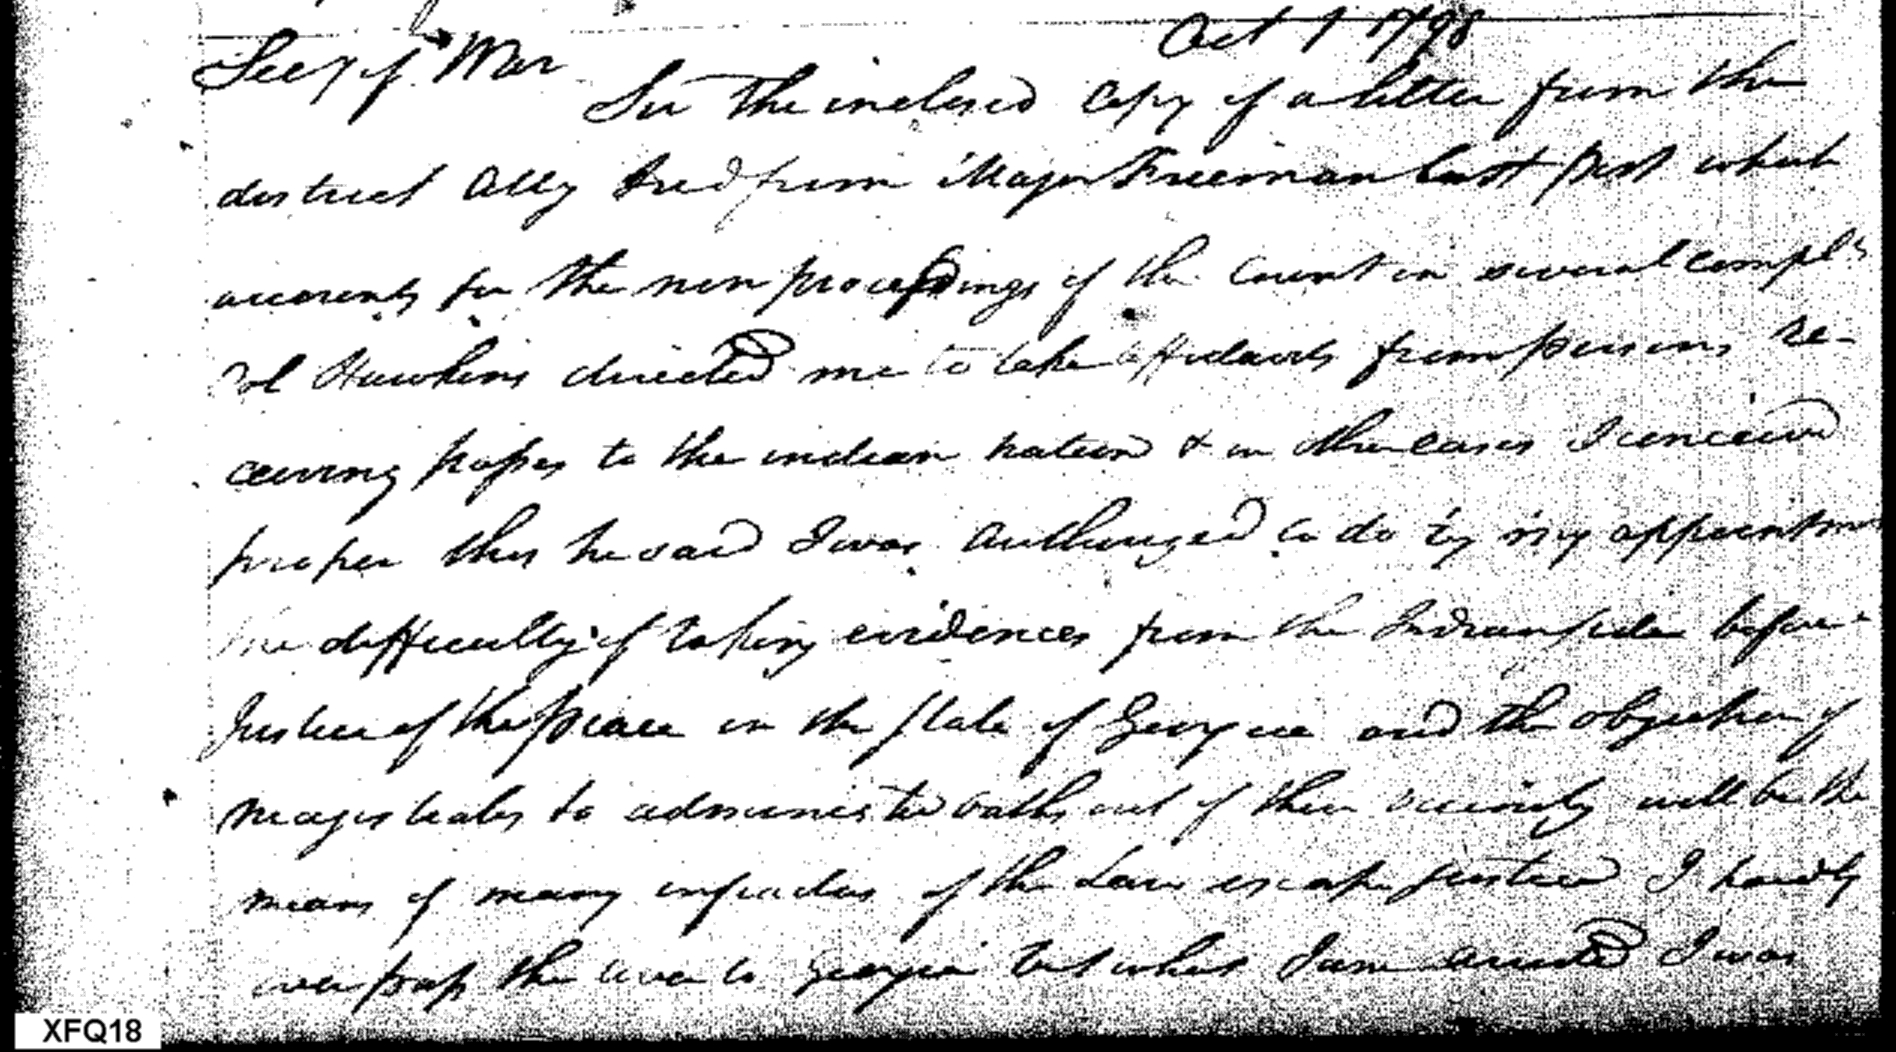 Oct 1 1798
Secy of War
Sir The inclosed Copy of a letter from the
district Atty Recd from Major Freeman last post what
accounts for the non proceedings of the Court in several compls
Col Hawkins directed me to take affidavits from persons re-
ceiving passes to the indian nation & in other cases I conceived
proper this he said I was Authorized to do by my appointm
The difficulty of taking evidences from the Indian side before
Justice of the Peace in the state of Georgia and the objection of
Magistrates to administer oaths out of their vicinity will be the
means of many infractors of the Law escape justice I hardly
ever pass the river to Georgia but what I am arrested I was
XFQ18